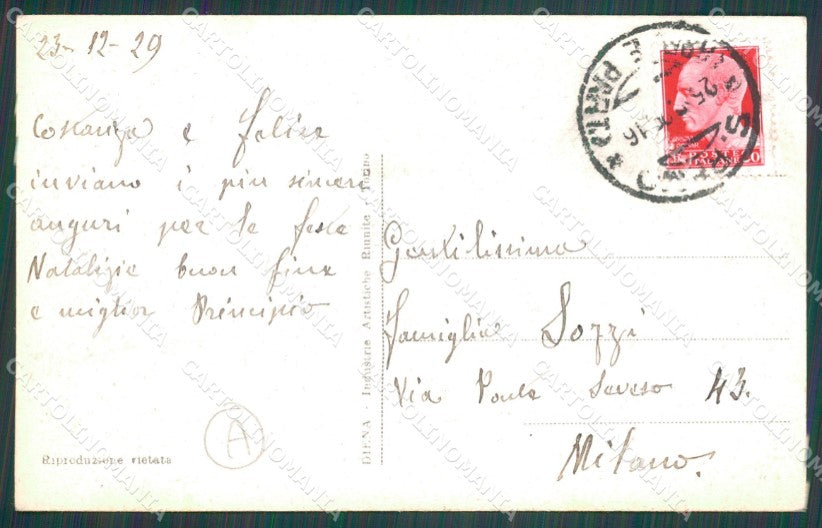 23-12-29
Costanza e Felice
inviano i più sinceri
auguri per le feste
Natalizie buon fine
e miglior Principio
Riproduzione vietata
A
DIENA - Industrie Artistiche Riunite - Torino
Gentilissima
famiglia Sozzi
Via Ponte Seveso 43.
Milano.
CARTOLINOMANIA